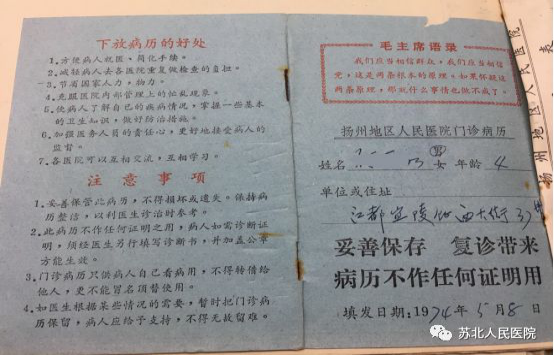 下放病历的好处
1.方便病人就医,简化手续。
2.减轻病人去各医院重复做检查的负担。
3.节省国家人力,物力。
4.克服医院内部管理上的忙乱现象。
5.使病人了解自己的疾病情况,掌握一些基本
的卫生知识,做好防治措施。
6.加强医务人员的责任心,更好地接受病人的
监督。
7.各医院可以互相交流,互相学习。
注意事项
1.妥善保管此病历,不得损坏或遗失。保持病
历整洁,以利医生诊治时参考。
2.此病历不作任何证明之用,病人如需诊断证
明,须经医生另行填写诊断书,并加盖公章
方能生效。
3.门诊病历只供病人自己看病用,不得转借给
他人,更不能冒名顶替使用。
4.如医生根据某些情况的需要,暂时把门诊病
历保留,病人应给予支持,不得无故留难。
毛主席语录
我们应当相信群众,我们应当相信
党,这是两条根本的原理,如果怀疑这
两条原理,那就什么事情也做不成了。
扬州地区人民医院门诊病历
姓名 男 女 年龄 4
单位或住址
江都宜陵
妥善保存 复诊带来
病历不作任何证明用
填发日期:1974年5月8日
苏北人民医院